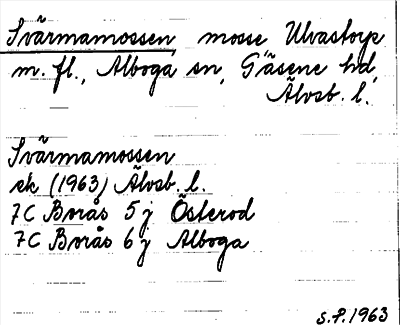 Svärmamossen mosse Ulvastorp
m. fl., Alboga sn, Gäsene hd,
Älvsb. l.
Svärmamossen
ek (1963) Älvsb. l.
7C Borås 5 j Österod
7C Borås 6 j Alboga
S.P. 1963